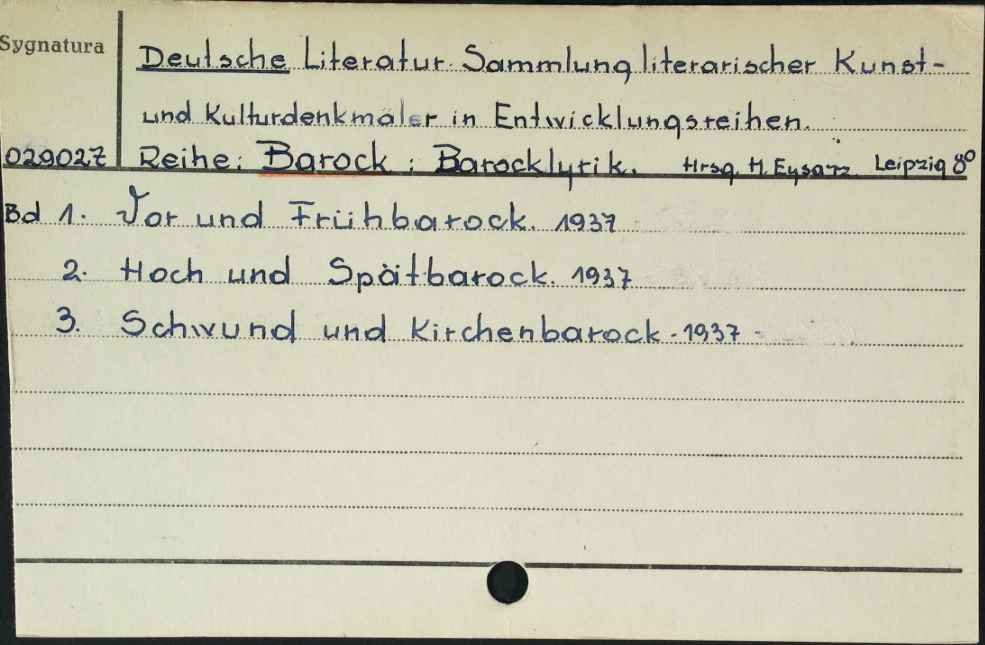 Sygnatura
Deutsche Literatur. Sammlung literarischer Kunst-
und Kulturdenkmäler in Entwicklungsreihen.
029027 Reihe: Barock : Barocklyrik. Hrsg. H. Eysarz Leipzig 8°
Bd 1. Vor und Frühbarock. 1937
2. Hoch und Spätbarock. 1937
3. Schwund und Kirchenbarock. 1937 -